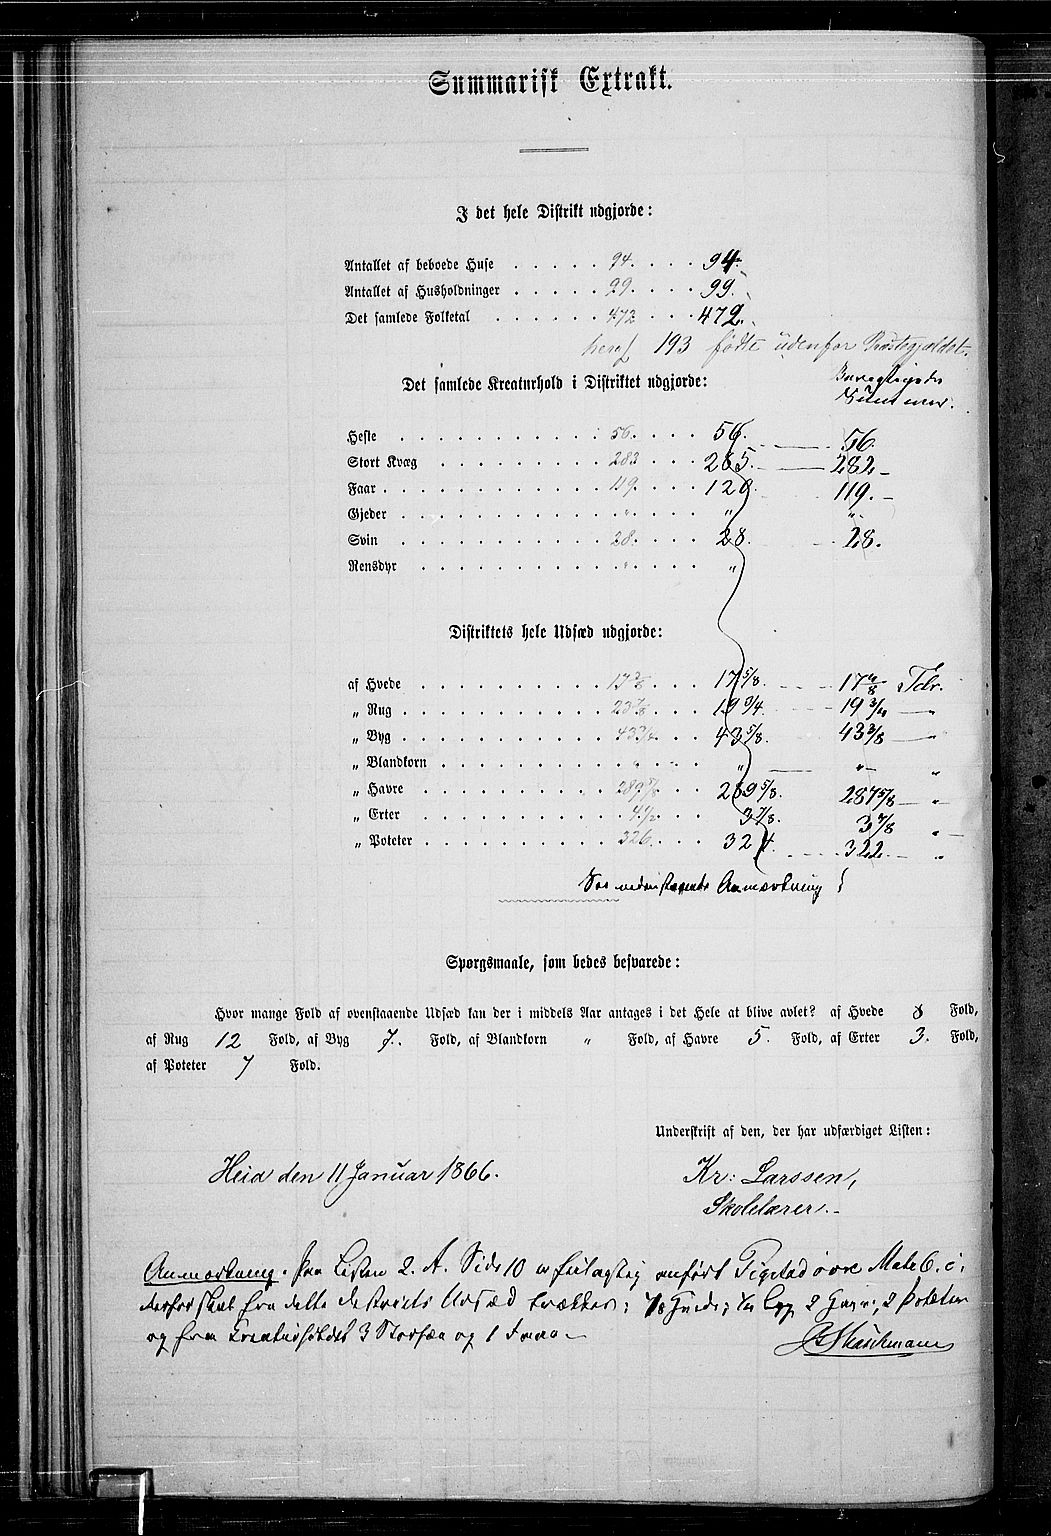 Summarisk Extrakt.
I det hele Distrikt udgjorde:
Antallet af beboede Huse . . . . . 94. . . . . 94.
Antallet af Husholdninger . . . . . 99. . . . . 99.
Det samlede Folketal . . . . . . 472 . . . 472.
heraf 193 fødte udenfor Præstegjældet.
Det samlede Kreaturhold i Distriktet udgjorde:
Berigtigede
Summer.
Heste . . . . . . . . . 56. . . . . 56. 56.
Stort Kvæg . . . . . . . 283 . . . 285. 282
Faar . . . . . . . . . 119. . . . . 120. 119.
Gjeder . . . . . . . . . " . . . . " "
Svin . . . . . . . . . 28. . . . . 28. 28.
Rensdyr . . . . . . . . " . . . . "
Distriktets hele Udsæd udgjorde:
af Hvede . . . . . . . . 17 5/8. 17 4/8 Tdr.
„ Rug . . . . . . . . . 19 3/4. 19 3/4 — "
„ Byg . . . . . . . . . 43 5/8. 43 3/8 — "
„ Blandkorn . . . . . . . " " "
„ Havre . . . . . . . . 289 5/8 . . 289 5/8. 287 5/8 — "
„ Erter . . . . . . . . 4 1/2 . . 3 7/8. 3 7/8 "
„ Poteter . . . . . . . . 326 . . . 324. 322. — "
See nedenstaaende Anmærkning!
Spørgsmaale, som bedes besvarede:
Hvor mange Fold af ovenstaaende Udsæd kan der i middels Aar antages i det Hele at blive avlet? af Hvede 8 Fold,
af Rug 12 Fold, af Byg 7. Fold, af Blandkorn " Fold, af Havre 5. Fold, af Erter 3. Fold,
af Poteter 7 Fold.
Underskrift af den, der har udfærdiget Listen:
Heia den 11 Januar 1866.
Kr: Larssen,
Skolelærer.
Anmærkning. Paa Listen 2. A. Side 10 er feilagtig anført Pigstad øvre Matr 6. c;
derfor skal fra dette Distrikts Udsæd trækkes: 1/8 Hvede; 1/4 Byg 2 Havre, 2 Poteter
og fra Kreaturholdet 3 Storfæ og 1 Faar